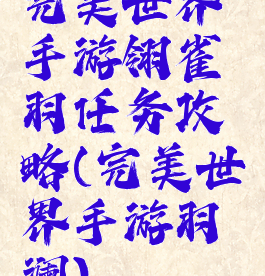 完美世界
手游翎雀
羽任务攻
略(完美世
界手游羽
澜)